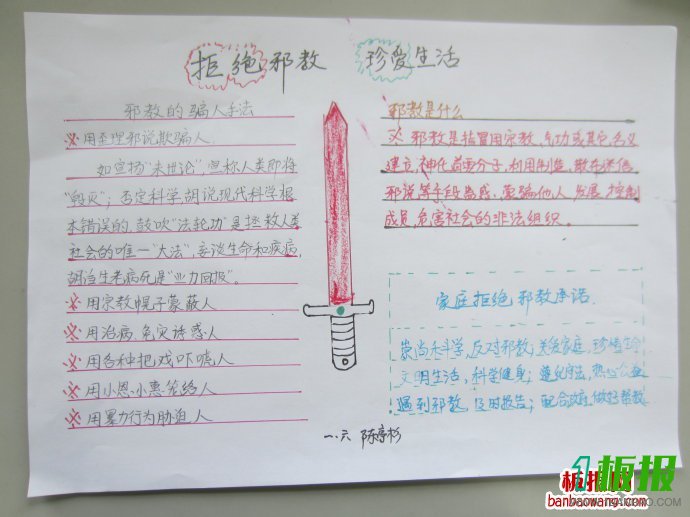 拒绝邪教 珍爱生活
邪教的骗人手法
※用歪理邪说欺骗人
如宣扬“末世论”,宣称人类即将
“毁灭”;否定科学,胡说现代科学根
本错误的,鼓吹“法轮功”是拯救人类
社会的唯一“大法”,妄谈生命和疾病,
胡当生老病死是“业力回报”。
※用宗教幌子蒙蔽人
※用治病、免灾诱惑人
※用各种把戏吓唬人
※用小恩小惠笼络人
※用暴力行为胁迫人
邪教是什么
※邪教是指冒用宗教、气功或其它名义
建立,神化首要分子,利用制造、散布迷信
邪说等手段蛊惑、蒙骗他人,发展、控制
成员,危害社会的非法组织。
家庭拒绝邪教承诺
崇尚科学,反对邪教;关爱家庭,珍惜
文明生活,科学健身;遵纪守法,热心公益
遇到邪教,及时报告;配合政府,做好帮教
一.六 陈
板报
板报网
banbaowang.com